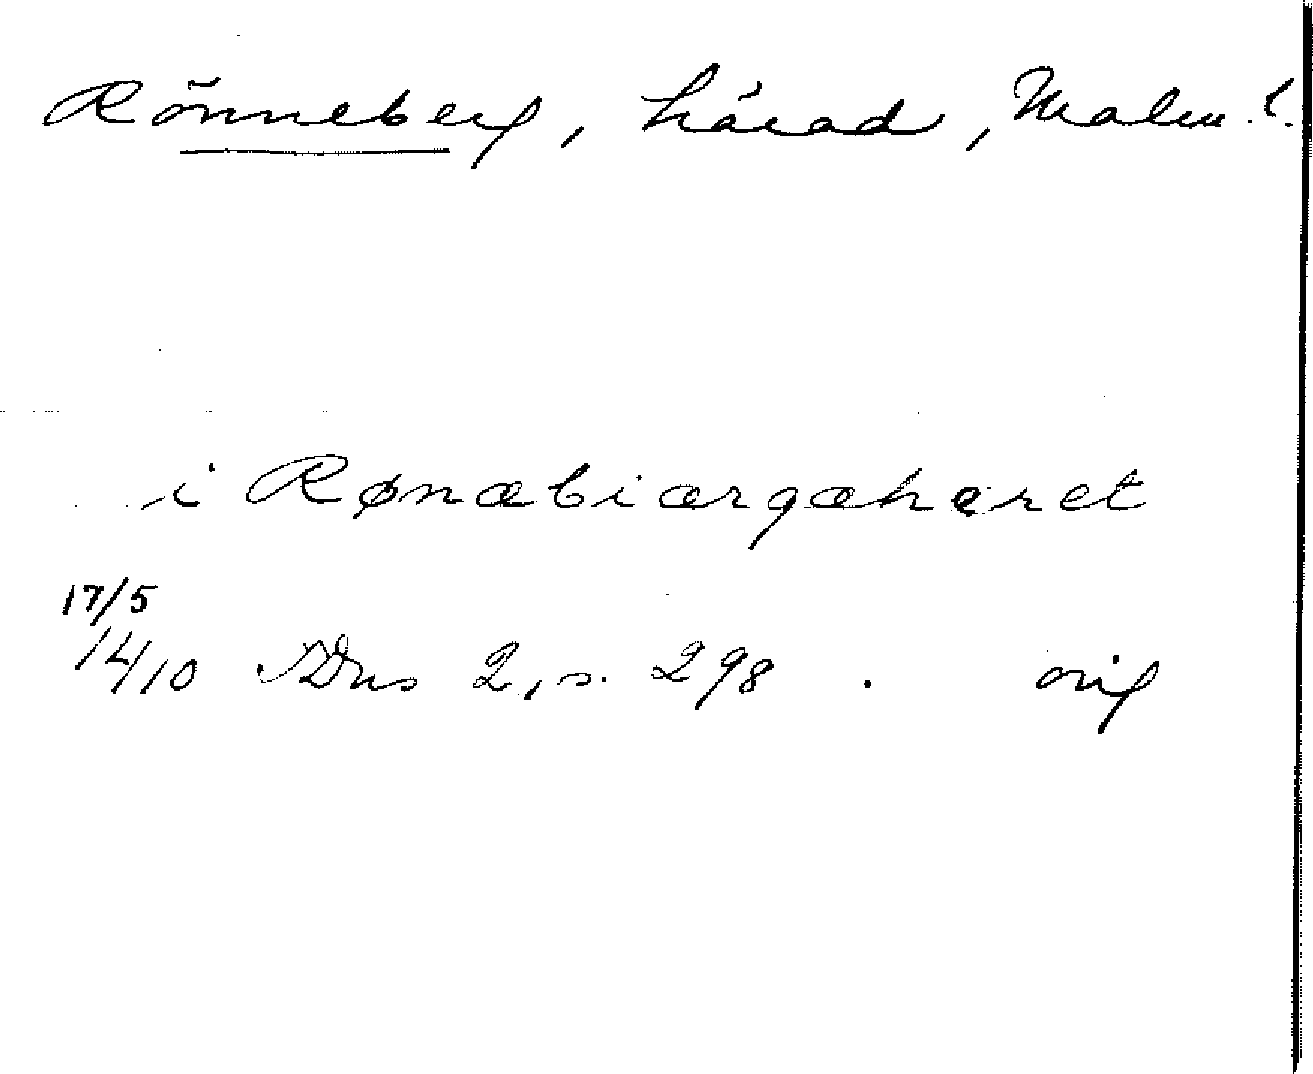 Rönneberg, härad, Malm. l.
i Rønæbiærgæheret
17/5
14/10 DRns 2, s. 298 . orig